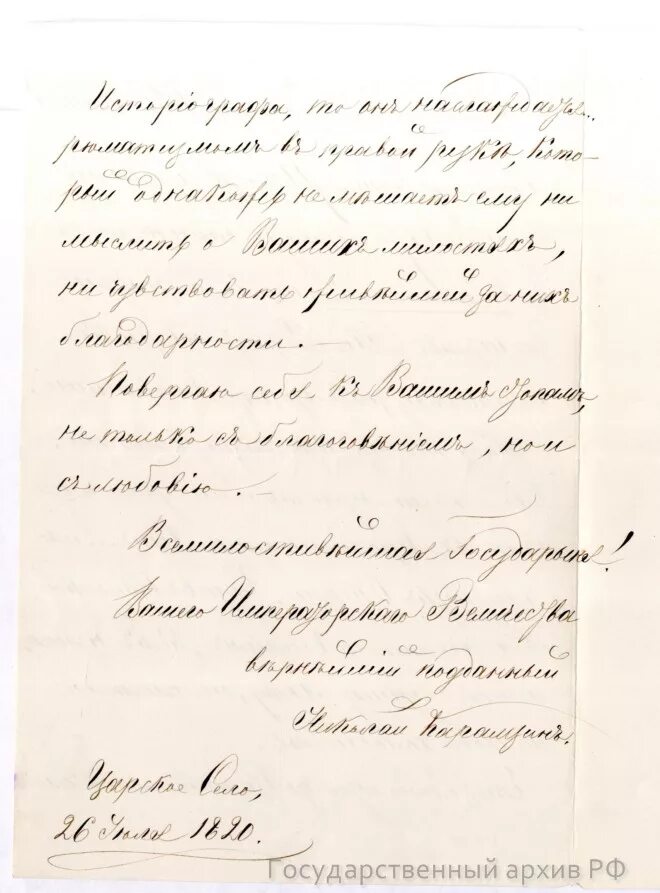 Исторіографа, то онъ наслаждается
рюматизмомъ въ правой рукѣ, кото-
рый однакожъ не мѣшаетъ ему ни
мыслить о Вашихъ милостяхъ,
ни чувствовать живѣйшей за нихъ
благодарности. —
Повергаю себя къ Вашимъ стопамъ,
не только съ благоговѣніемъ, но и
съ любовію.
Всемилостивѣйшая Государыня!
Вашего Императорскаго Величества
вѣрнѣйшій подданный
Николай Карамзинъ.
Царское Село,
26 Іюля 1820.
Государственный архив РФ